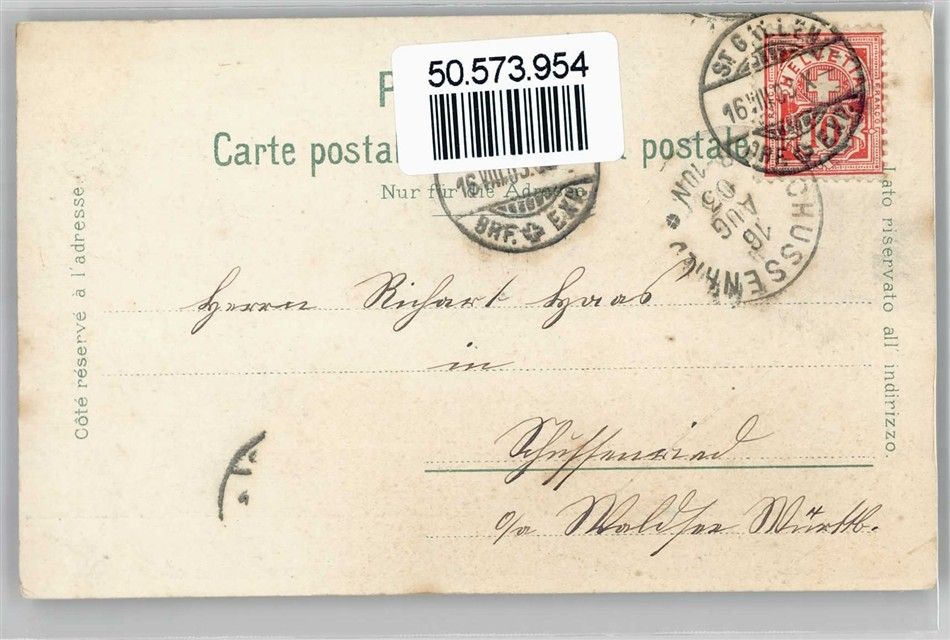 50.573.954
Carte postale
postale
Nur für die Adresse.
Côté réservé à l'adresse.
Lato riservato all' indirizzo.
ST GALLEN
HELVETIA
10
BRF. EXP.
SCHUSSENRIED
16
AUG
03
Herrn Richart Haas
in
Schussenried
o/a Waldsee Württb.